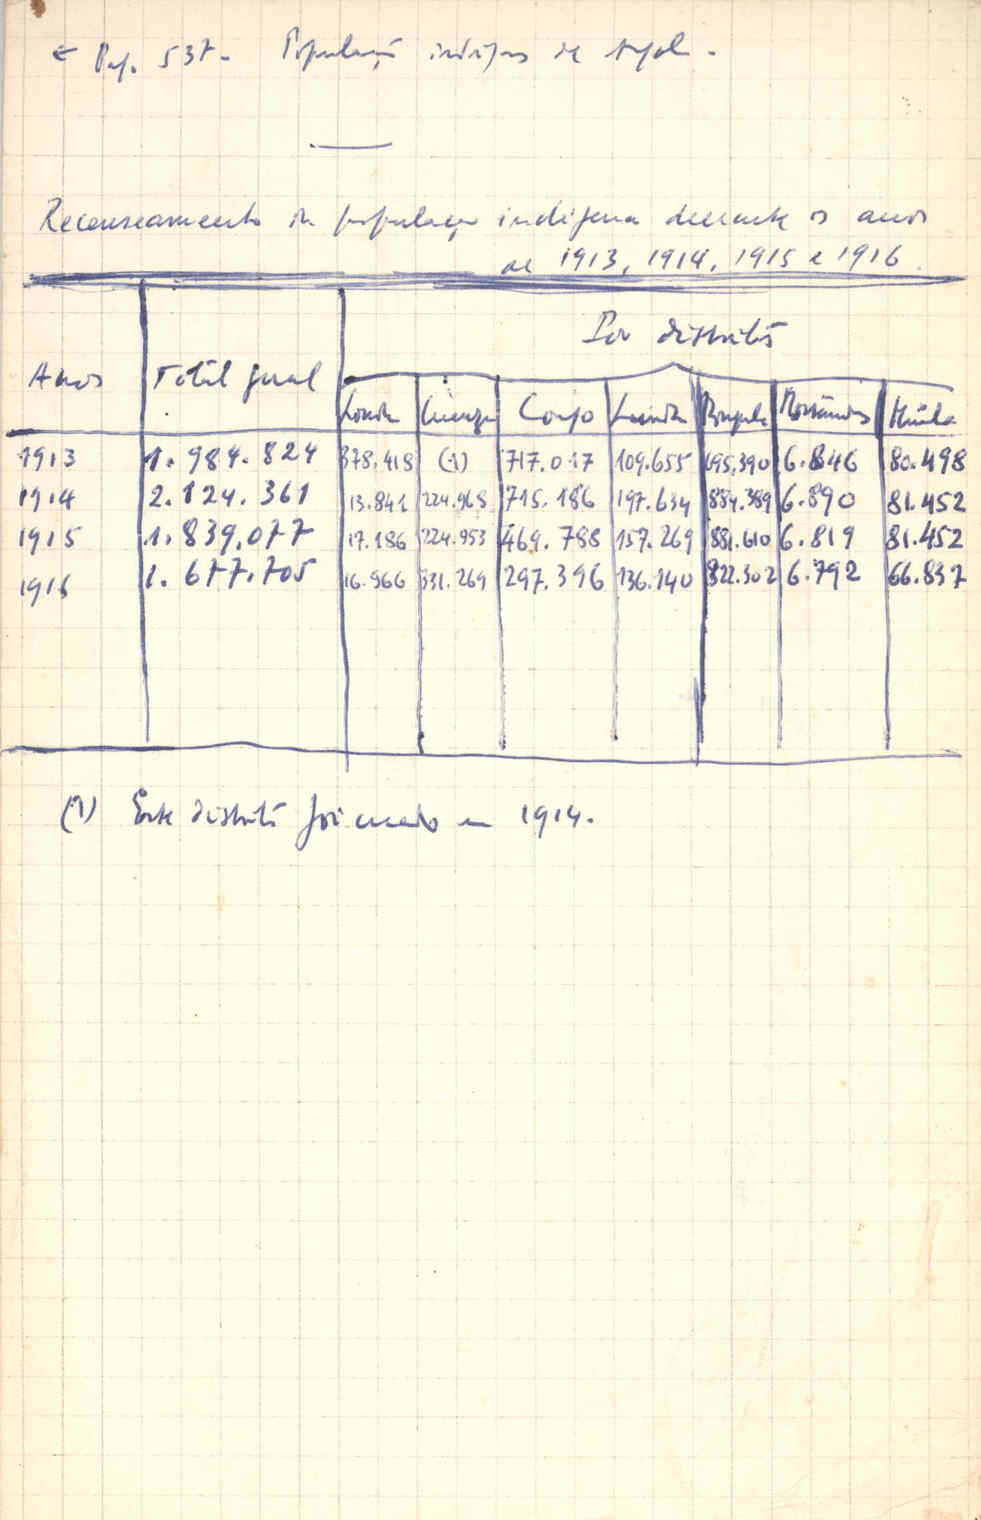 ← Pag. 537. População indígena de Angola.
Recenseamento da população indígena durante os anos
de 1913, 1914, 1915 e 1916.
Por distritos
Anos Total geral
Loanda Cuanza Congo Lunda Benguela Mossâmedes Huíla
1913 1.984.824 378.418 (1) 717.017 109.655 695.390 6.846 80.498
1914 2.124.361 13.841 224.968 715.186 197.634 884.389 6.890 81.452
1915 1.839.077 17.186 224.953 469.788 157.269 881.610 6.819 81.452
1916 1.677.705 16.966 331.269 297.396 136.140 822.302 6.792 66.837
(1) Este distrito foi criado em 1914.